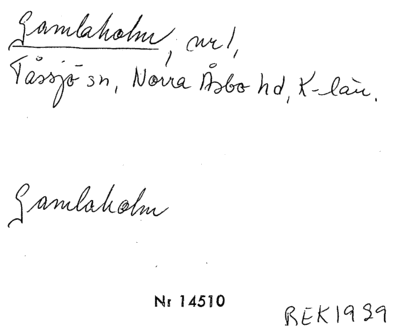 Gamlaholm, nr 1,
Tåssjö sn, Norra Åsbo hd, K-län.
Gamlaholm
Nr 14510
REK 1939